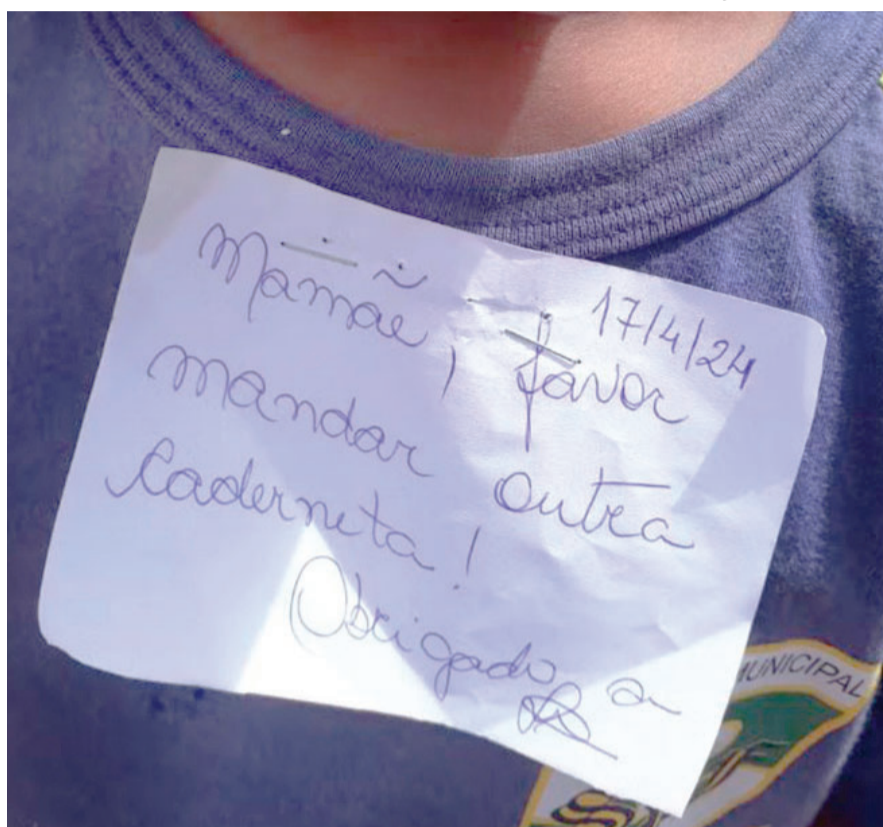 17/4/24
Mamãe, favor
mandar outra
Caderneta!
Obrigada
MUNICIPAL